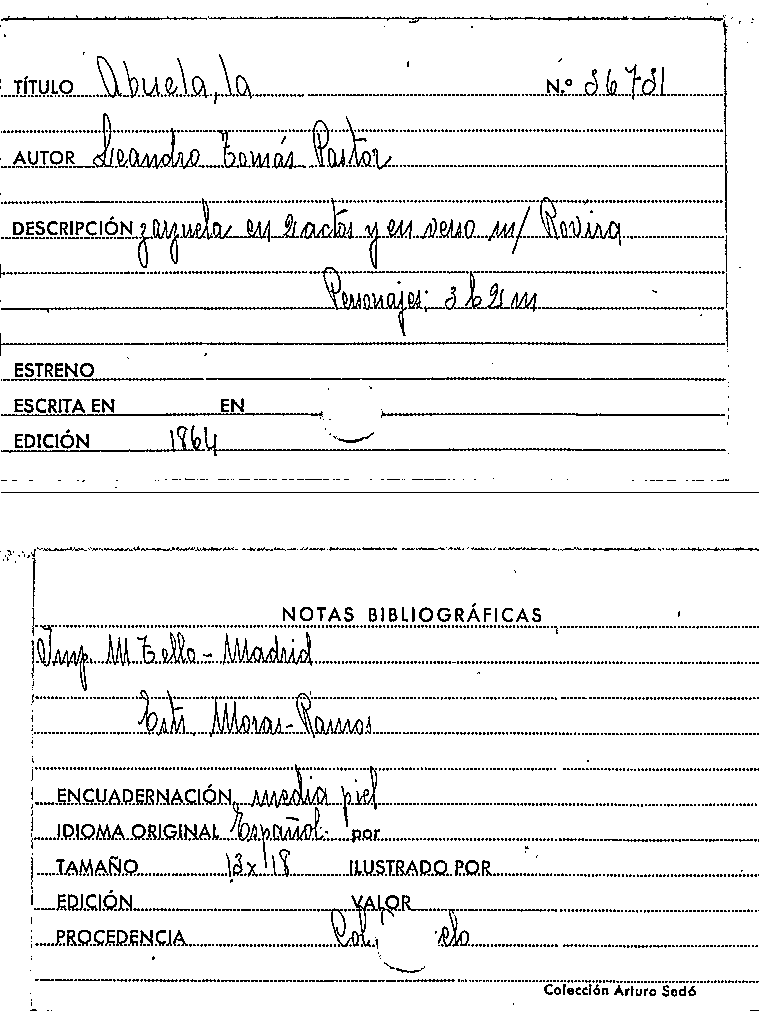 TÍTULO Abuela, la N.º 36781
AUTOR Leandro Tomás Pastor
DESCRIPCIÓN zarzuela en 2 actos y en verso m/ Rovira
Personajes: 3 h 2 m
ESTRENO
ESCRITA EN EN
EDICIÓN 1864
NOTAS BIBLIOGRÁFICAS
Imp. M Tello - Madrid
Estr. Moras-Ramos
ENCUADERNACIÓN media piel
IDIOMA ORIGINAL Español por
TAMAÑO 13x18 ILUSTRADO POR
EDICIÓN VALOR
PROCEDENCIA
Colección Arturo Sedó